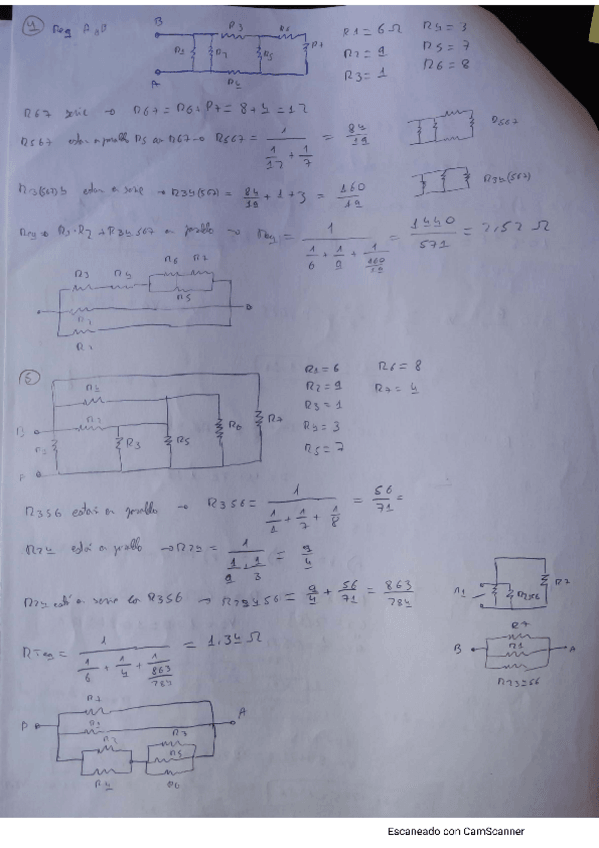 4 Req A,B
B
R3
R6
R1
R2
R5
R7
A
R4
R1 = 6 Ω R4 = 3
R2 = 9 R5 = 7
R3 = 1 R6 = 8
R67 serie → R67 = R6 + R7 = 8 + 4 = 12
R567 estan en paralelo R5 con R67 → R567 = 1 / (1/12 + 1/7) = 84/19
R567
R3(567)4 estan en serie → R34(567) = 84/19 + 1 + 3 = 160/19
R34(567)
Req → R1 · R2 + R34567 en paralelo → Req = 1 / (1/6 + 1/9 + 1/(160/19)) = 1440/571 = 2,52 Ω
R3 R4 R6
R5
5
R1 = 6 R6 = 8
R2 = 9 R7 = 4
R3 = 1
R4 = 3
R5 = 7
B
R3 R5 R6 R7
R356 están en paralelo → R356 = 1 / (1/1 + 1/7 + 1/8) = 56/71 =
R24 están en paralelo → R24 = 1 / (1/9 + 1/3) = 9/4
R24 está en serie con R356 → R23456 = 9/4 + 56/71 = 863/284
R1 R7
RTeq = 1 / (1/6 + 1/4 + 1/(863/284)) = 1.34 Ω
R7
B R1 A
A
R2 R3
R5
R4 R6
Escaneado con CamScanner